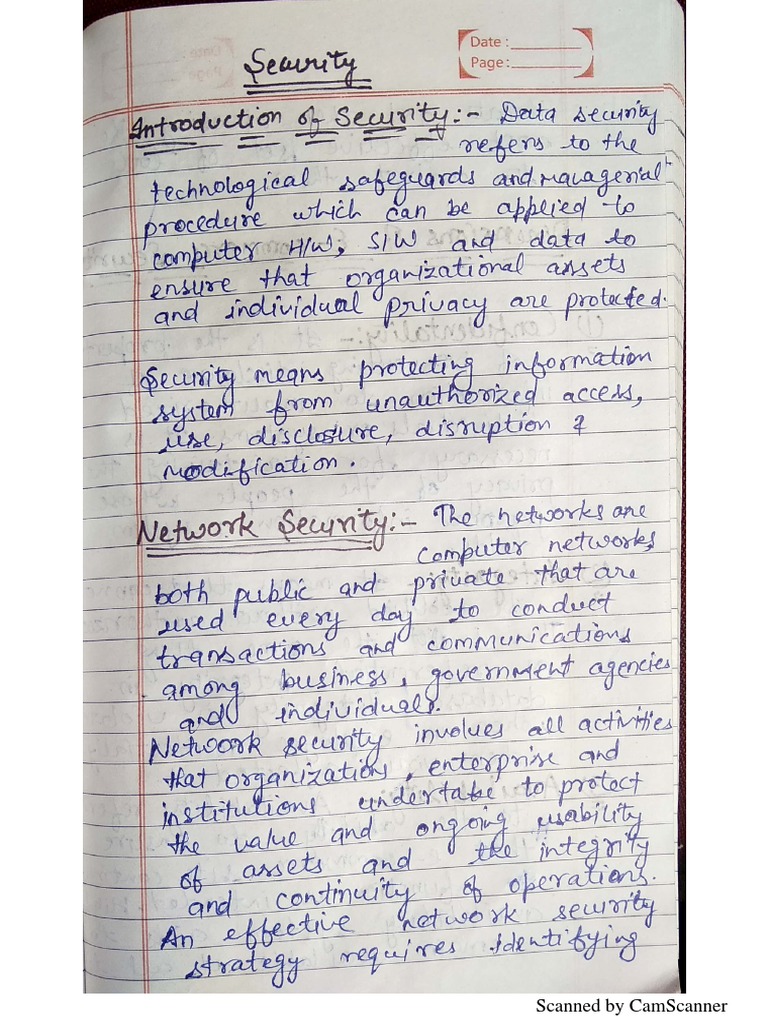 Date :
Page :
Security
Introduction of Security:- Data security
refers to the
technological safeguards and managerial
procedure which can be applied to
computer H/W, S/W and data to
ensure that organizational assets
and individual privacy are protected.
Security means protecting information
system from unauthorized access,
use, disclosure, disruption &
modification.
Network Security:- The networks are
computer networks,
both public and private that are
used every day to conduct
transactions and communications
among business, government agencies
and individuals.
Network security involves all activities
that organizations, enterprise and
institutions undertake to protect
the value and ongoing usability
of assets and the integrity
and continuity of operations.
An effective network security
strategy requires identifying
Scanned by CamScanner